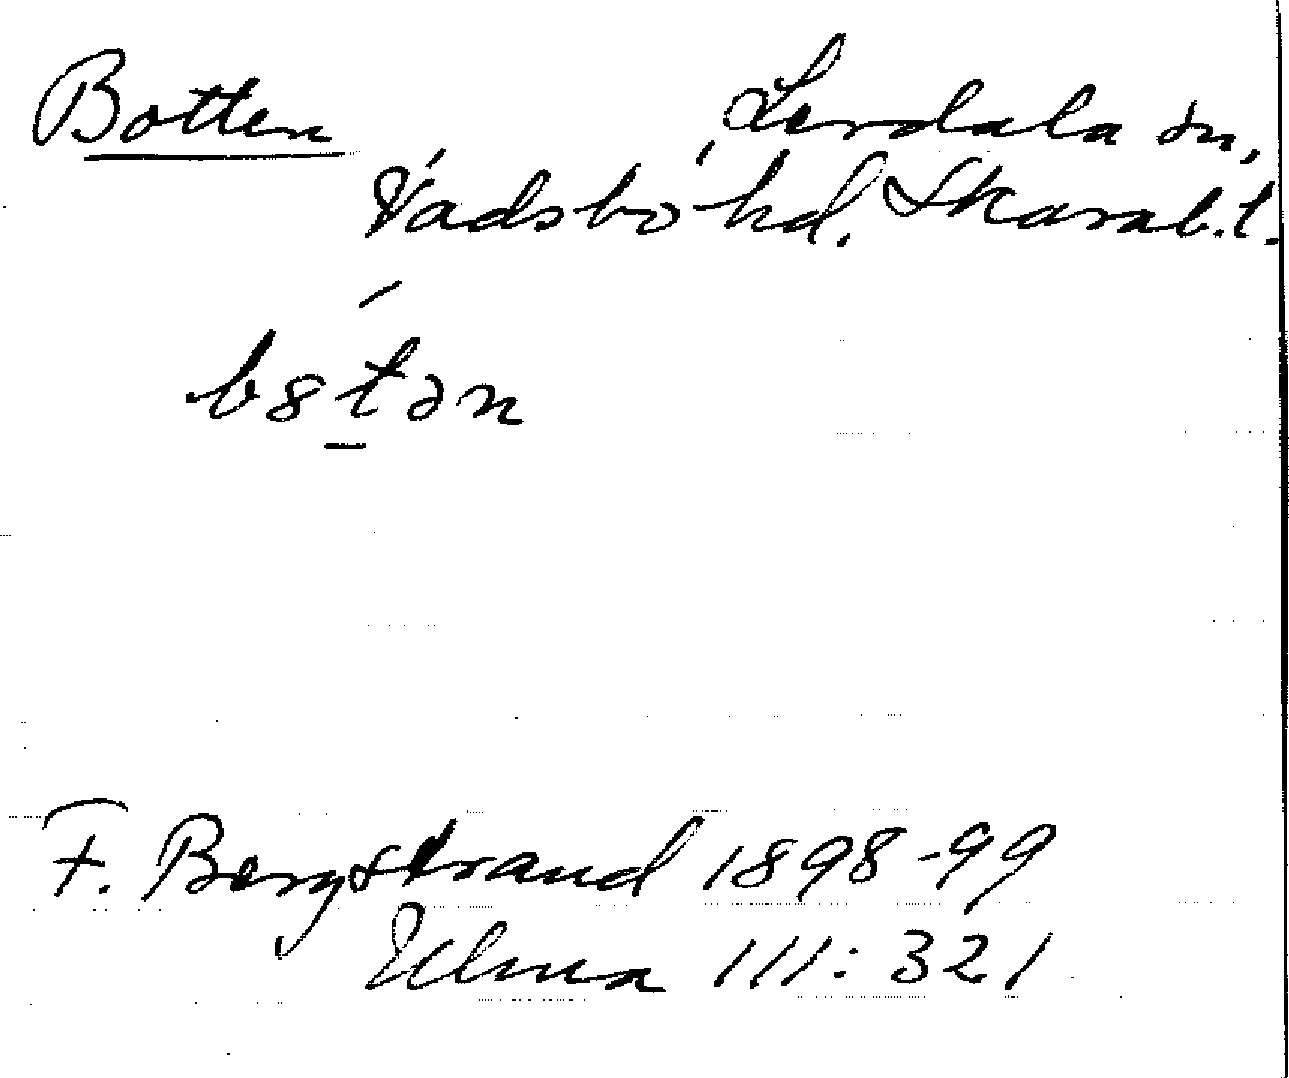 Botten Lerdala sn,
Vadsbo hd. Skarab.l.
b8tən
F. Bergstrand 1898-99
Ulma 111:321